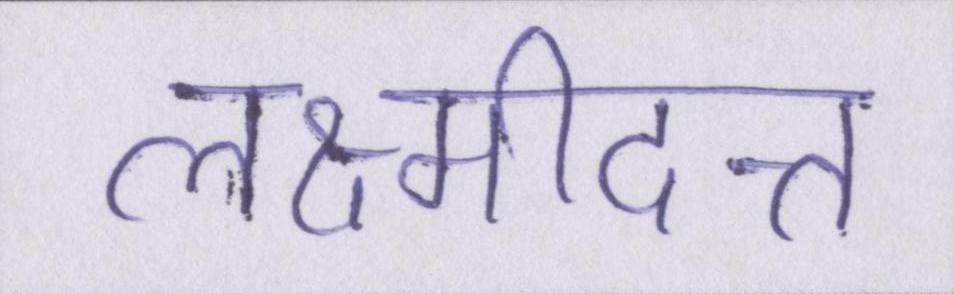 लक्ष्मीदत्त